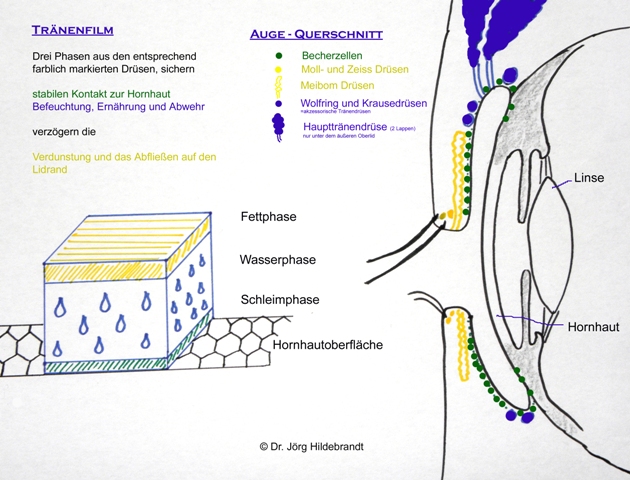 TRÄNENFILM
Drei Phasen aus den entsprechend
farblich markierten Drüsen, sichern
stabilen Kontakt zur Hornhaut
Befeuchtung, Ernährung und Abwehr
verzögern die
Verdunstung und das Abfließen auf den
Lidrand
AUGE - QUERSCHNITT
Becherzellen
Moll- und Zeiss Drüsen
Meibom Drüsen
Wolfring und Krausedrüsen
=akzessorische Tränendrüsen
Haupttränendrüse (2 Lappen)
nur unter dem äußeren Oberlid
Linse
Fettphase
Wasserphase
Schleimphase
Hornhaut
Hornhautoberfläche
© Dr. Jörg Hildebrandt